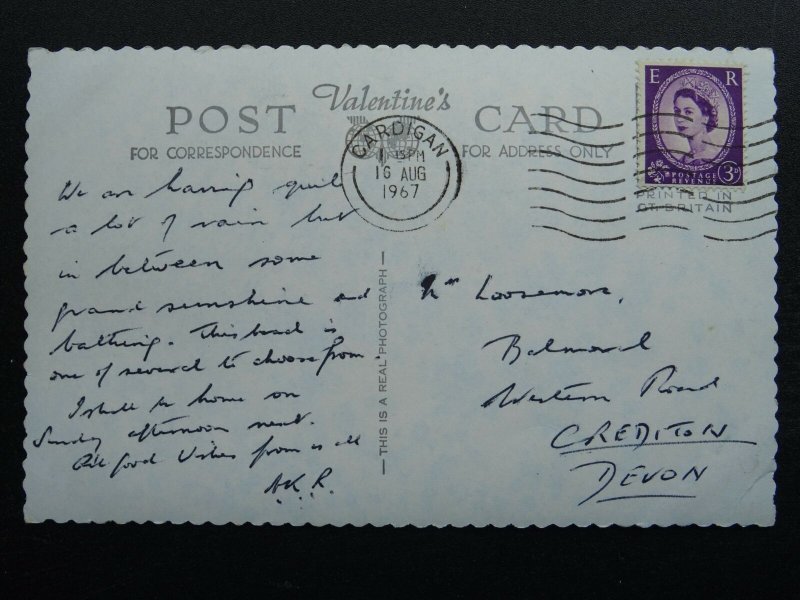 POST Valentine's CARD
FOR CORRESPONDENCE FOR ADDRESS ONLY
E R
POSTAGE
REVENUE
3D
CARDIGAN
PM
16 AUG
1967
PRINTED IN
GT. BRITAIN
We are having quite
a lot of rain but
in between some
grand sunshine and
bathing. This beach is
one of several to choose from.
I shall be home on
Sunday afternoon next.
All Good Wishes from us all
A.K.R.
— THIS IS A REAL PHOTOGRAPH —
Loosemore,
Balmoral
Western Road
CREDITON
DEVON